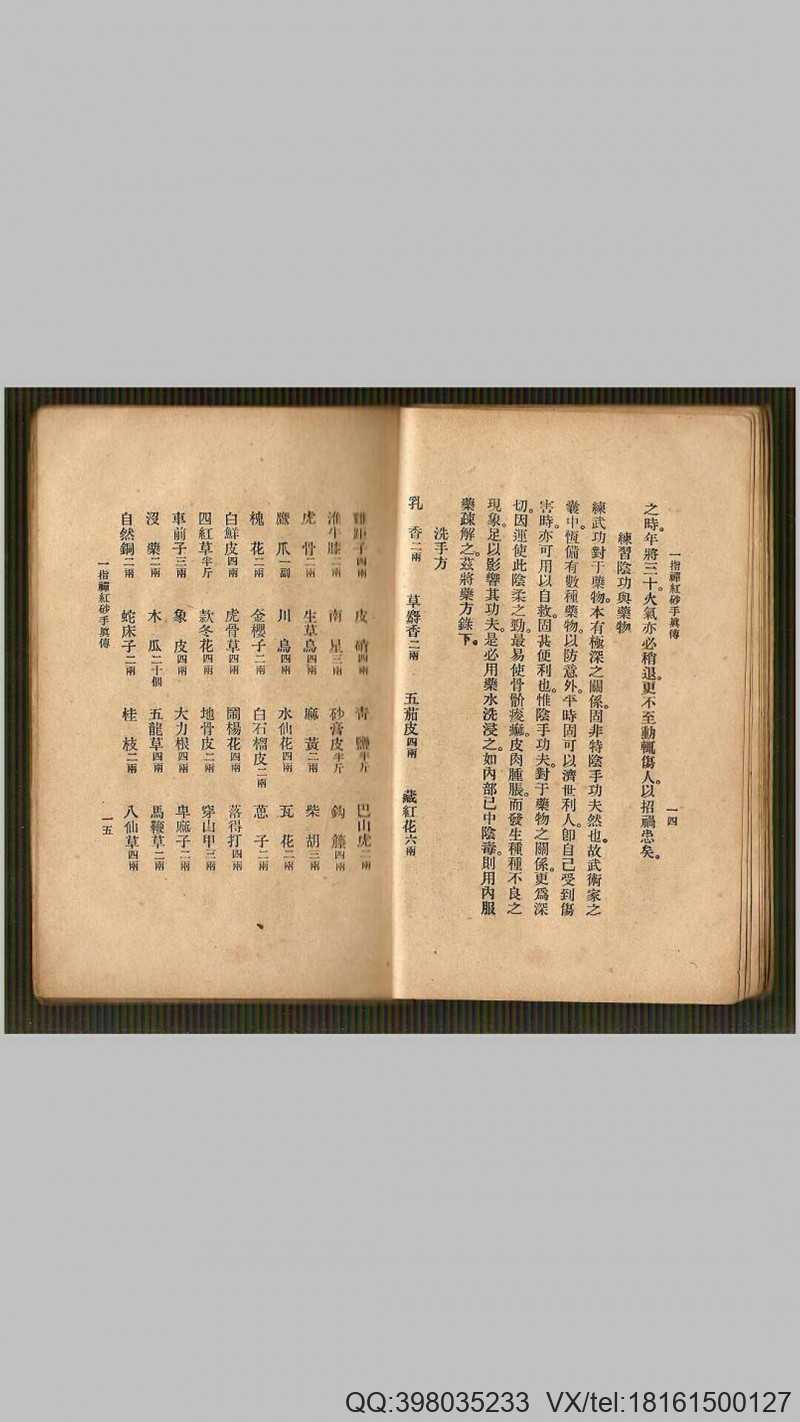 一指禪紅砂手眞傳
一四
之時。年將三十。火氣亦必稍退。更不至動輒傷人。以招禍患矣。
練習陰功與藥物
練武功對于藥物。本有極深之關係。固非特陰手功夫然也。故武術家之
囊中。恆備有數種藥物。以防意外。平時固可以濟世利人。卽自己受到傷
害時。亦可用以自救。固甚便利也。惟陰手功夫。對于藥物之關係。更爲深
切。因運使此陰柔之勁。最易使骨骱痠痲。皮肉腫脹。而發生種種不良之
現象。足以影響其功夫。是必用藥水洗浸之。如內部已中陰毒。則用內服
藥疎解之。茲將藥方錄下。
洗手方
乳香二兩 草蔚香二兩 五茄皮四兩 藏紅花六兩
皮硝四兩 靑鹽半斤 巴山虎二兩
淮牛膝二兩 南星三兩 砂膏皮半斤 鈎籐四兩
虎骨二兩 生草烏四兩 麻黃二兩 柴胡三兩
鷹爪一副 川烏四兩 水仙花四兩 瓦花二兩
槐花二兩 金櫻子二兩 白石榴皮二兩 蔥子二兩
白鮮皮四兩 虎骨草四兩 鬧楊花四兩 落得打四兩
四紅草半斤 款冬花四兩 地骨皮二兩 穿山甲三兩
車前子三兩 象皮四兩 大力根四兩 卑麻子二兩
沒藥二兩 木瓜二十個 五龍草四兩 馬鞭草二兩
自然銅二兩 蛇床子二兩 桂枝二兩 八仙草四兩
一指禪紅砂手眞傳
一五
QQ:398035233 VX/tel:18161500127